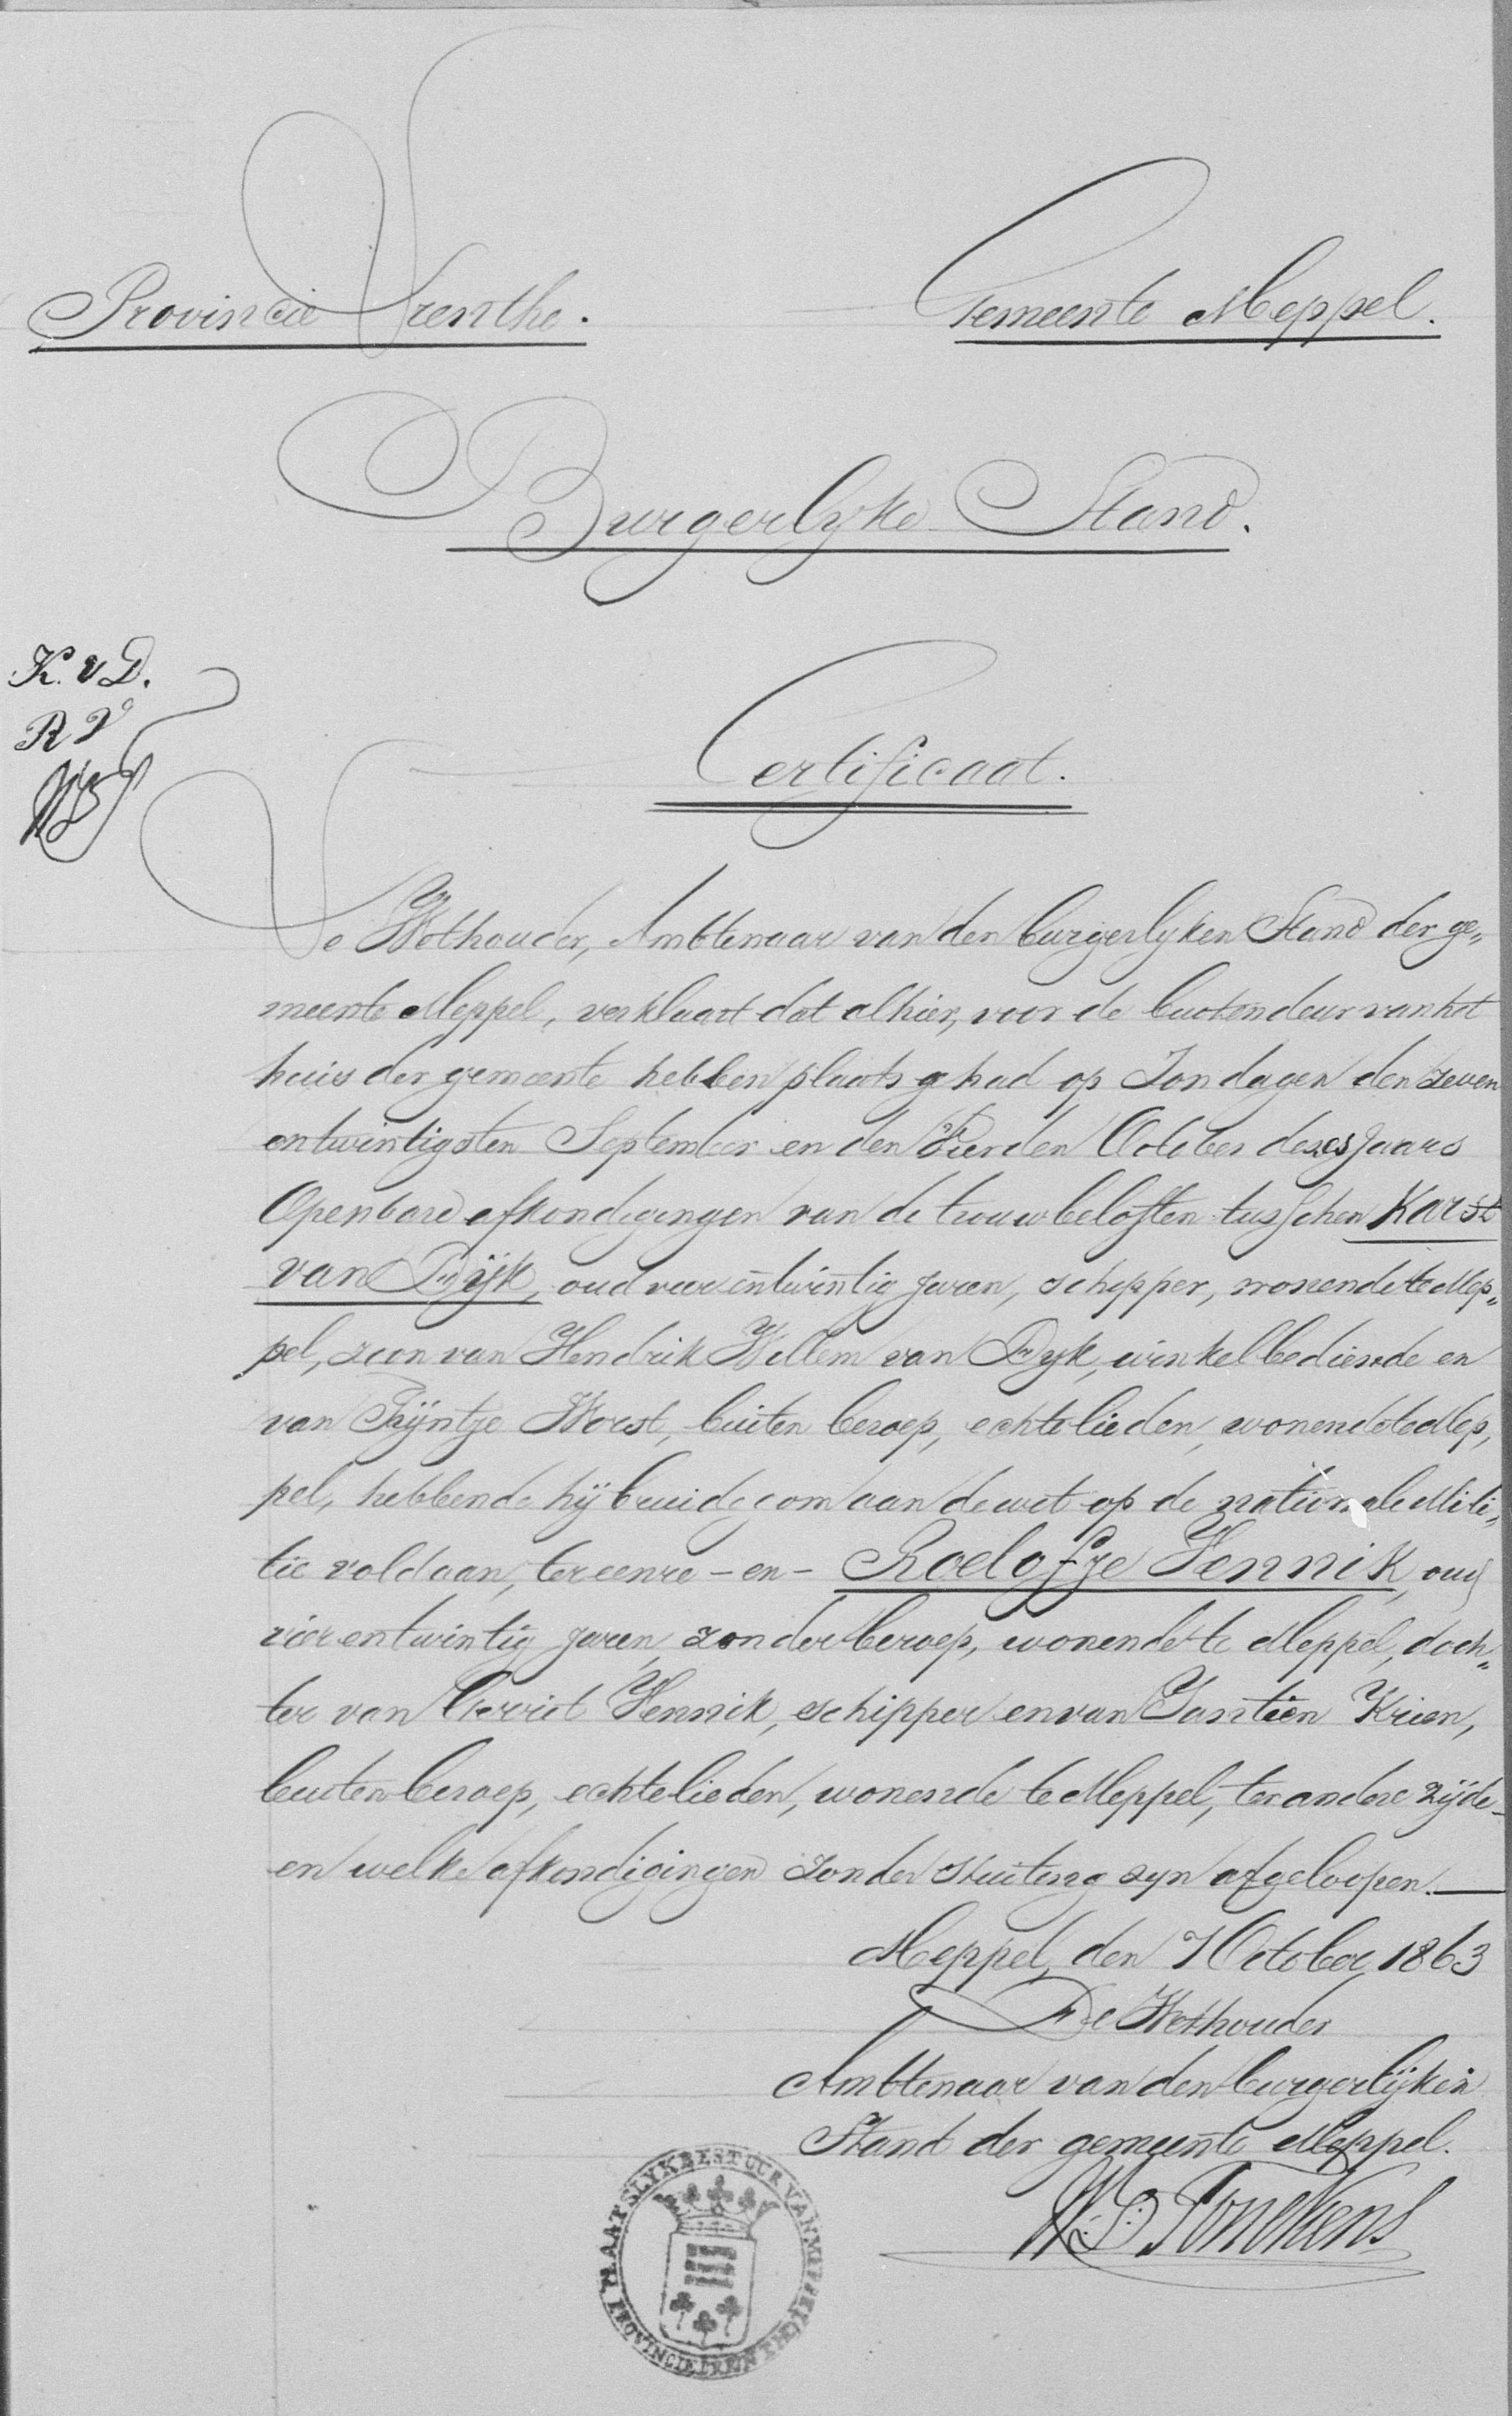 Provincie Drenthe. Gemeente Meppel.
Burgerlyke Stand.
K. v D.
R V
Certificaat.
De Wethouder, Ambtenaar van den burgerlyken Stand der ge„
meente Meppel, verklaart dat alhier, voor de buitendeur van het
huis der gemeente hebben plaats gehad op Zondagen den zeven
entwintigsten September en den vierden October dezes Jaars
Openbare afkondigingen van de trouwbeloften tusschen Karst
van Dijk, oud vier entwintig jaren, schipper, wonende te Mep„
pel, zoon van Hendrik Willem van Dyk, winkelbediende en
van Trijntje Worst, buiten beroep, echtelieden, wonende te Mep„
pel, hebbende hij bruidegom aan de wet op de nationale Mili„
tie voldaan, ter eenre – en – Roelofje Vennik, oud
vier entwintig jaren, zonder beroep, wonende te Meppel, doch„
ter van Gerrit Vennik, schipper en van Jantien Krien,
buiten beroep, echtelieden, wonende te Meppel, ter andere zijde –
en welke afkondigingen zonder stuiting zyn afgeloopen. —
Meppel, den 7 October 1863
De Wethouder
Ambtenaar van den burgerlijken
Stand der gemeente Meppel.
Tonckens
PLAATSLYK BESTUUR VAN MEPPEL PROVINCIE DRENTHE